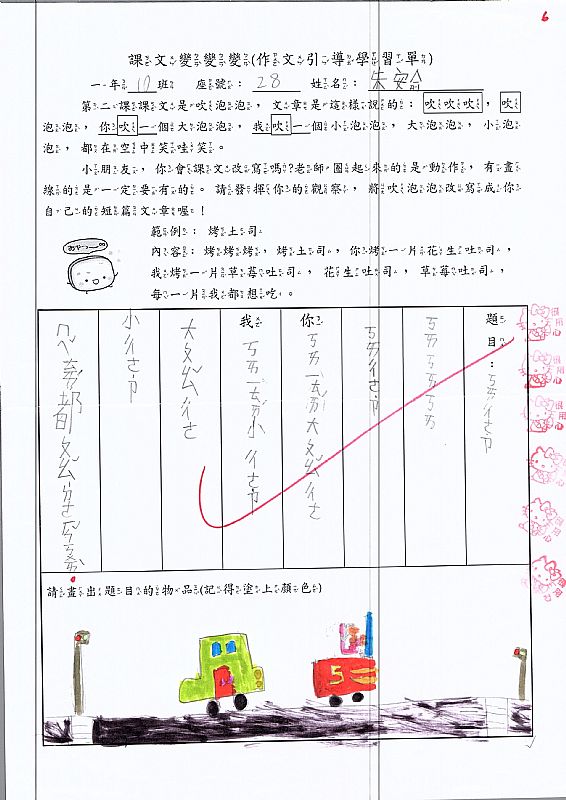 6
課文變變變(作文引導學習單)
一年17班 座號：28 姓名：朱安俞
第二課課文是吹泡泡，文章是這樣說的：吹吹吹，吹
泡泡，你吹一個大泡泡，我吹一個小泡泡，大泡泡，小泡
泡，都在空中笑哇笑。
小朋友，你會課文改寫嗎?老師圈起來的是動作，有畫
線的是一定要有的。請發揮你的觀察，將吹泡泡改寫成你
自己的短篇文章喔！
範例：烤土司
內容：烤烤烤，烤土司，你烤一片花生吐司，
我烤一片草莓吐司，花生吐司，草莓吐司，
每一片我都想吃。
題目：ㄎㄞㄔㄜˇㄗ˙
ㄎㄞ ㄎㄞ ㄎㄞ
ㄎㄞㄔㄜㄗ˙
你ㄎㄞ ㄧˊㄊㄞˊㄉㄚˋㄔㄜ
我ㄎㄞ ㄧˊㄊㄞˊ小ㄔㄜ
大
小ㄔㄜ
都
請畫出題目的物品(記得塗上顏色)
5
很用心
很用心
很用心